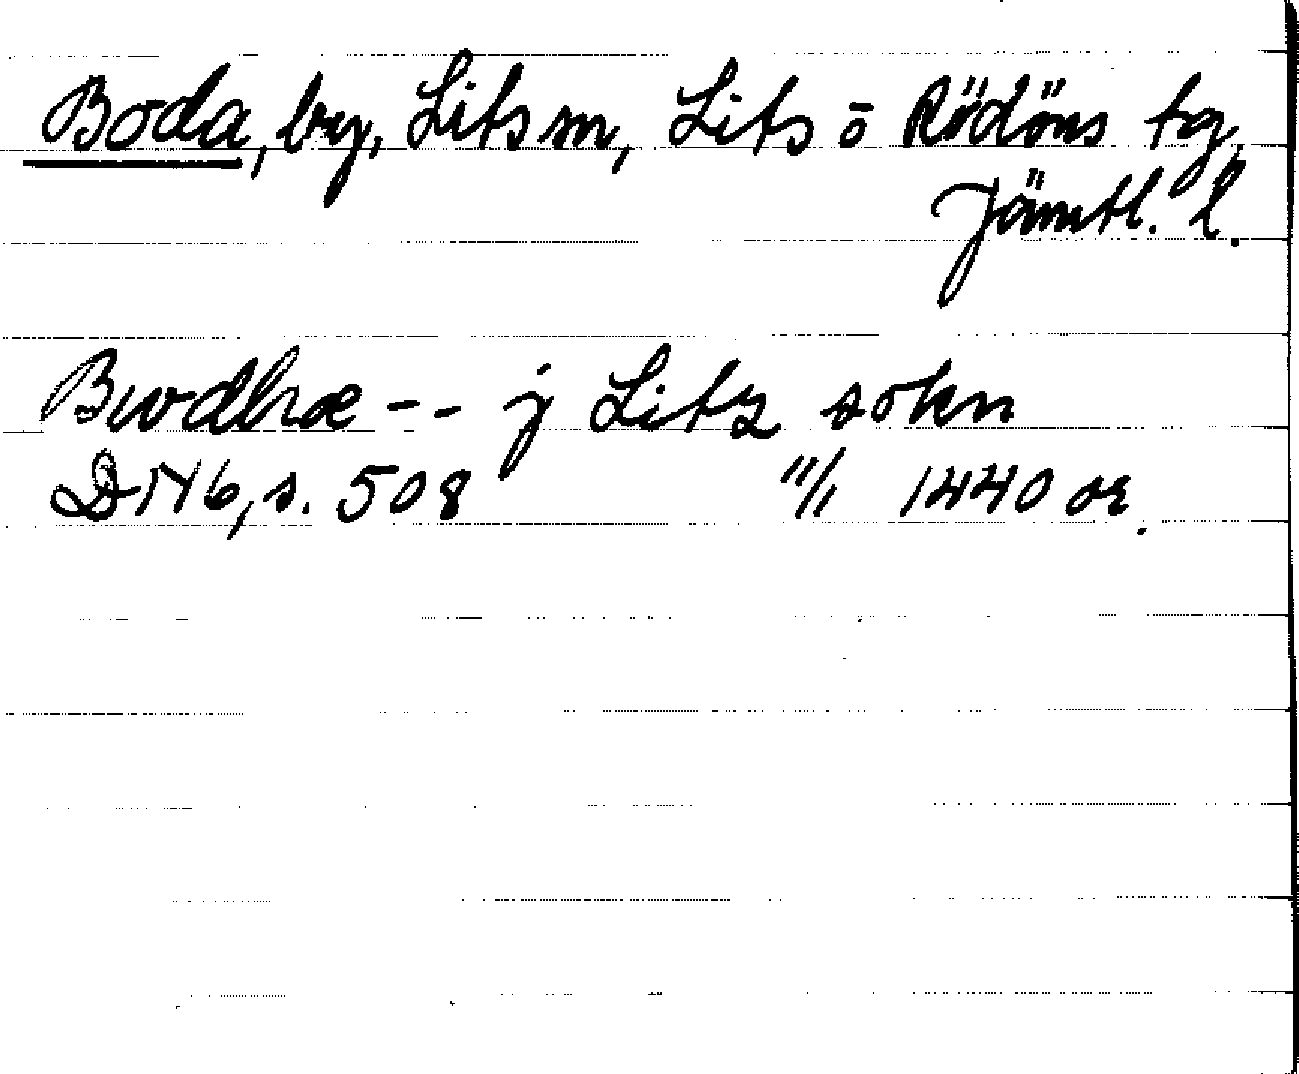 Boda, by, Lits sn, Lits o Rödöns tg,
Jämtl. l.
Bwdhræ -- j Litz sokn
DN 16, s. 508 11/1 1440 or.